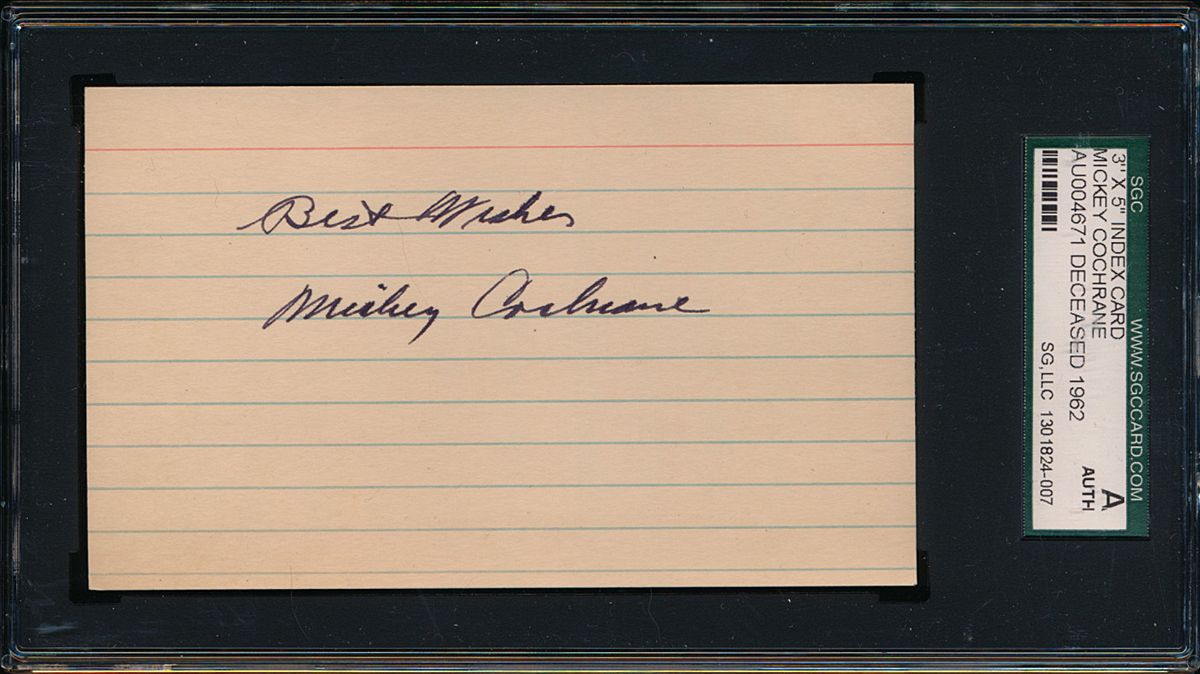 Best Wishes
Mickey Cochrane
SGC WWW.SGCCARD.COM
3" X 5" INDEX CARD
MICKEY COCHRANE
AU004671 DECEASED 1962
A
AUTH
SG, LLC 1301824-007